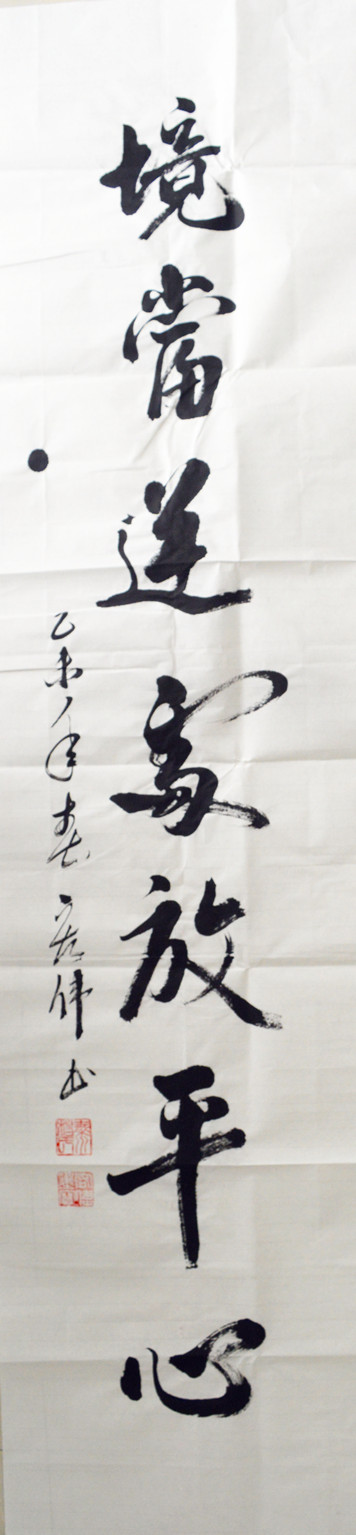 境當逆處放平心
乙未年春 伟书